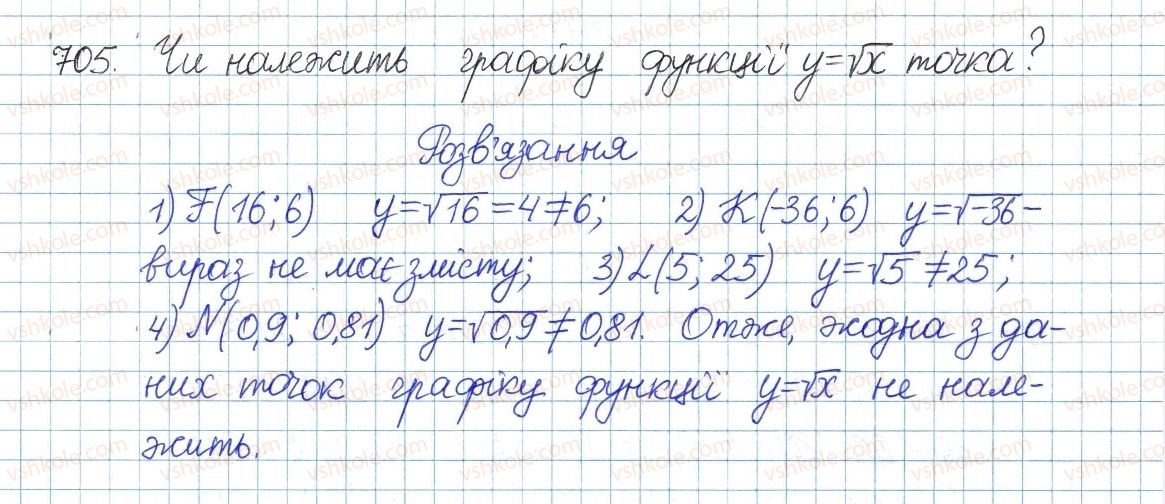 705. Чи належить графіку функції y=√x точка?
Розв'язання
1) F(16; 6) y=√16=4≠6; 2) K(-36; 6) y=√-36 -
вираз не має змісту; 3) L(5; 25) y=√5≠25;
4) N(0,9; 0,81) y=√0,9≠0,81. Отже, жодна з да-
них точок графіку функції y=√x не нале-
жить.